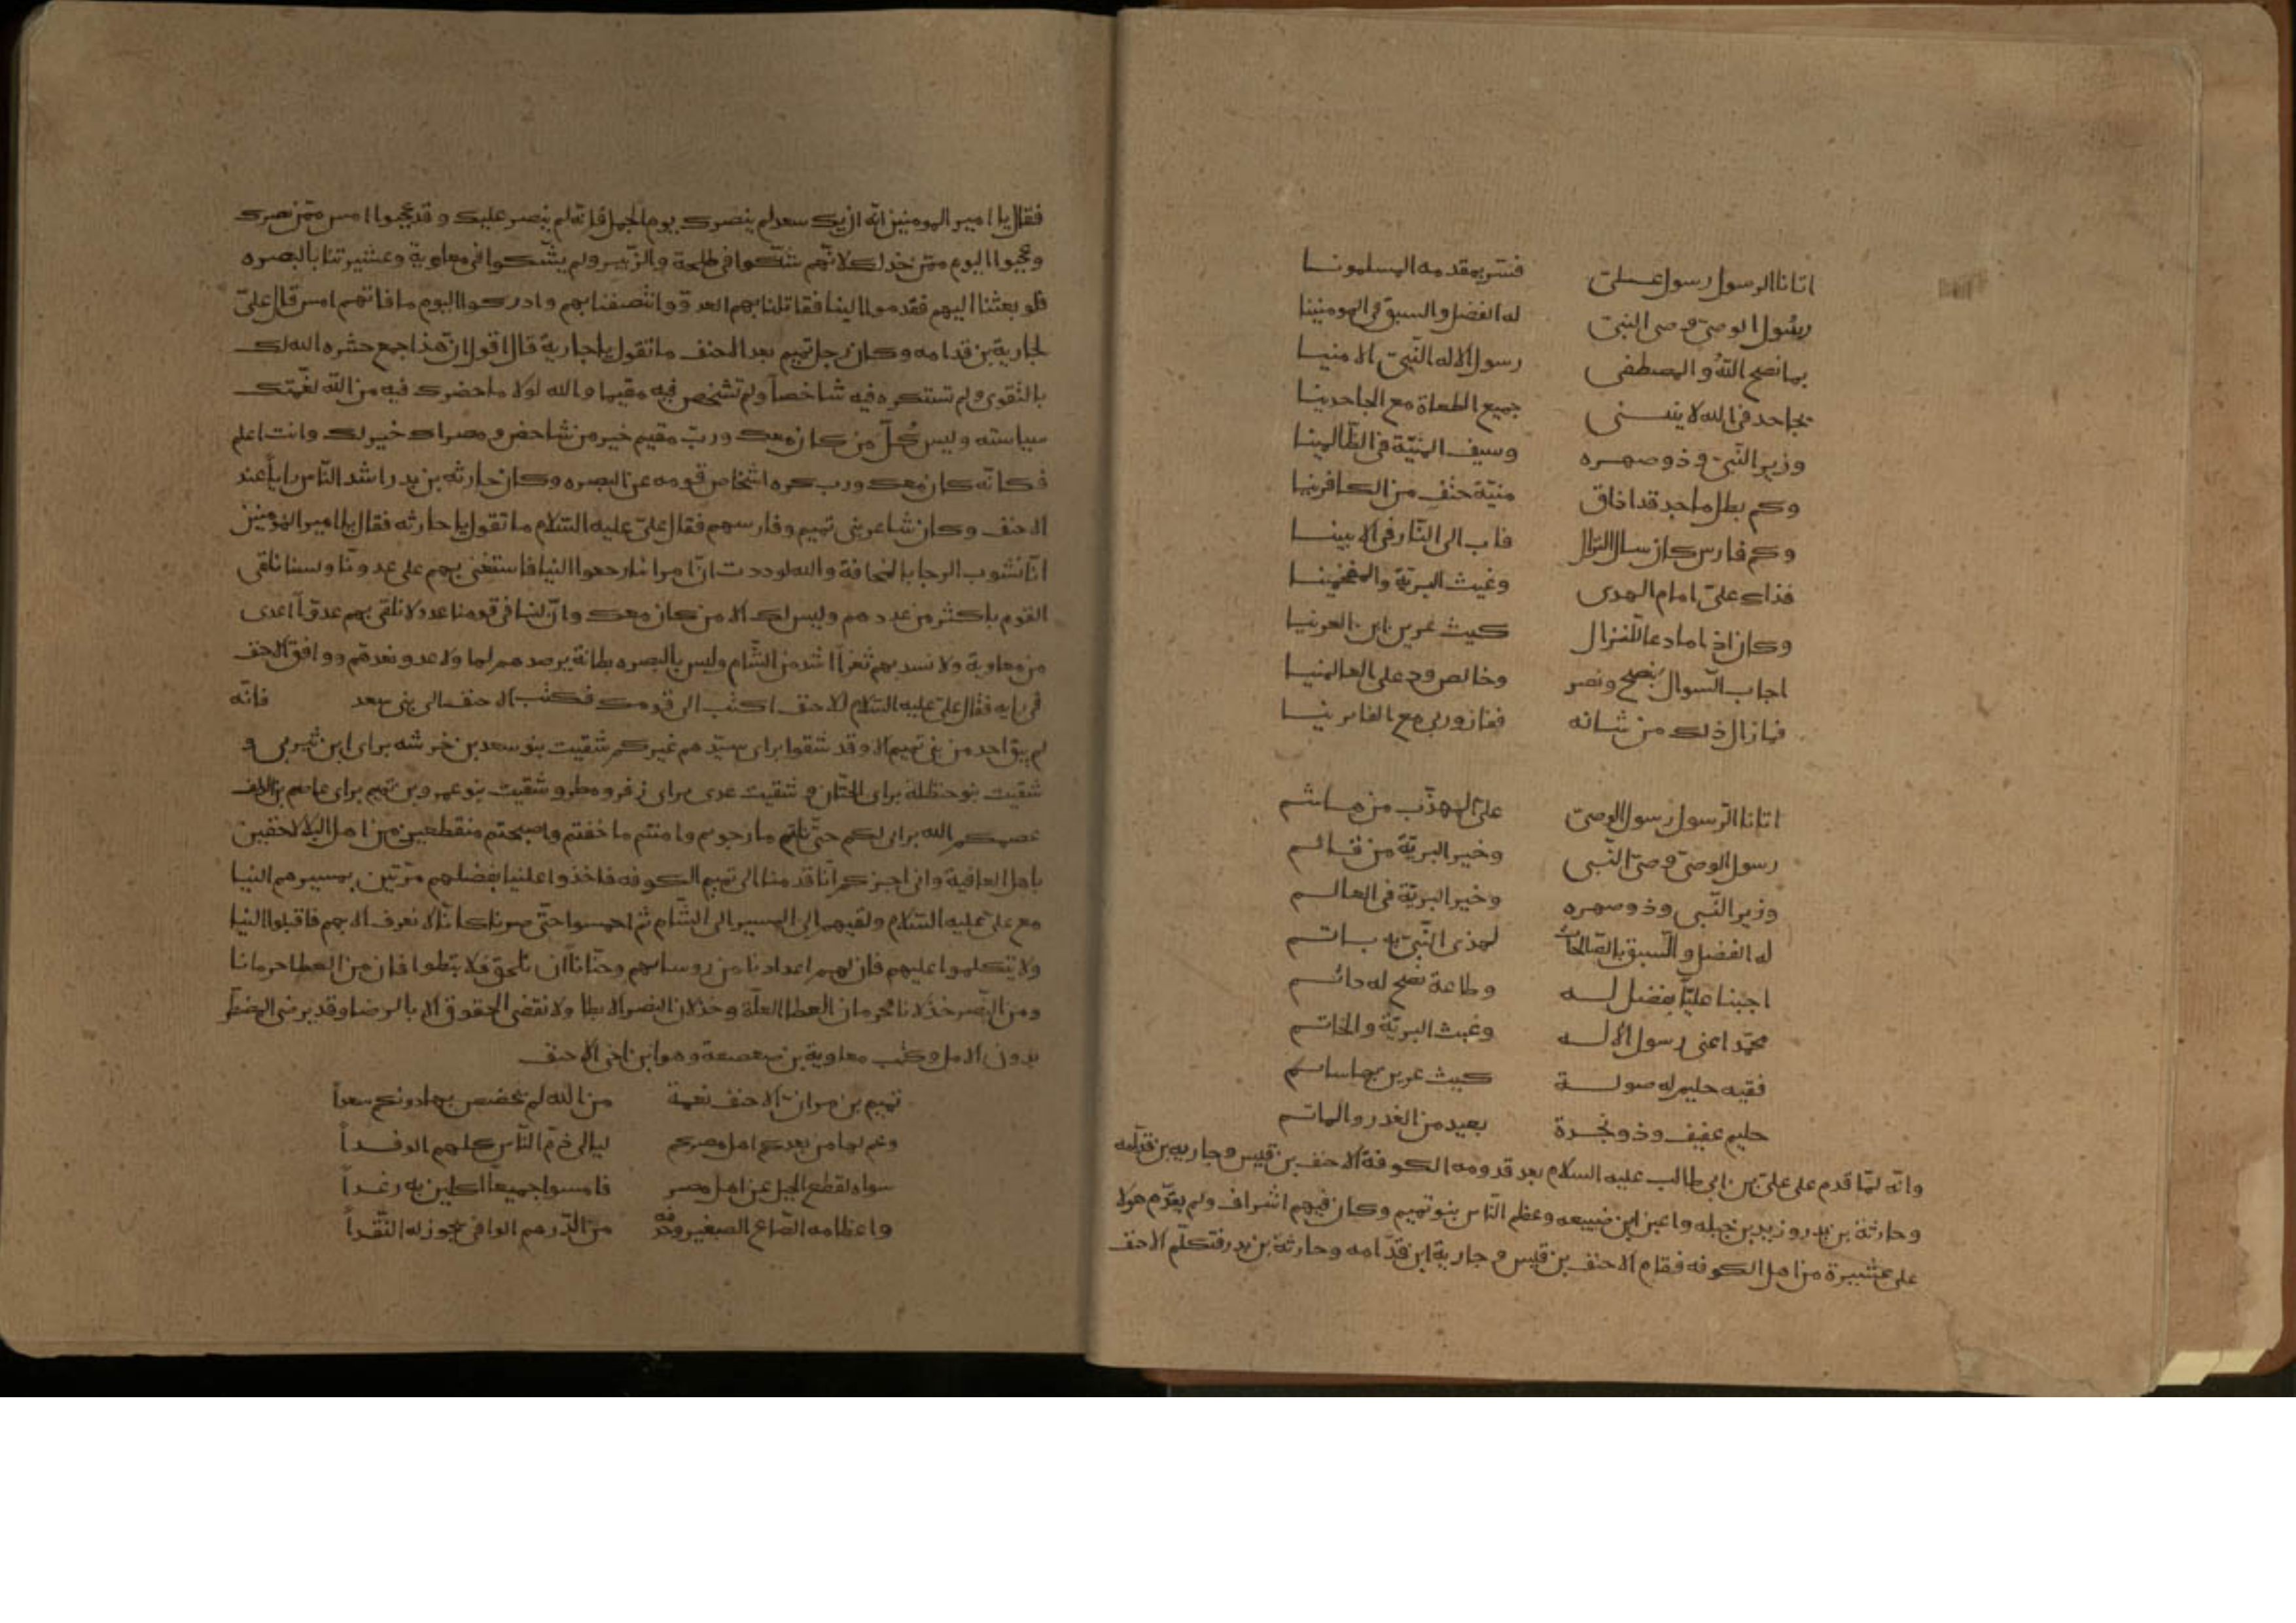 اتانا الرسول رسول علىّ فسّر بمقدمه المسلمونا
رسُول الوصىّ وصى النبىّ له الفضل والسبق فى المومنينا
بما نصح اللهُ والمصطفى رسول الاله النّبىّ الامنيا
يجاحد فى الله لا ينثنى جميع الطعاة مع الجاحدينا
وزير النّبىّ وذو صهره وسيف المنيّة فى الظّالمينا
وكم بطل ماجد قد اذاق منيّة حتف من الكافرينا
وكم فارس كان سال النزال فاب الى النّار فى الابينا
فذاك علىّ امام الهدى وغيث البريّة والمفحمينا
وكان اذا ما دعا للنزال كليث عرين ابن العرنيا
اجاب السّوال بنصح ونصر وخالص ود على العالمنيا
فما زال ذلك من شانه ففاز وربى مع الفايرينا
اتانا الرّسول رسول الوصىّ علىّ المهذّب من هاشم
رسول الوصىّ وصىّ النّبى وخير البريّة من قائم
وزير النّبى وذو صهره وخير البريّة فى العالم
له الفضل والسّبق بالصّالحات لهذى النّبىّ به ياتم
اجبنا عليّاً بفضل له وطاعة نصح له دائم
محمّد اعنى رسول الاله وغيث البريّة والخاتم
فقيه حليم له صولة كليث عرين بها سائم
حليم عفيف وذو نجدة بعيد من الغدر والماتم
وانّه لمّا قدم على علىّ بن ابى طالب عليه السلام بعد قدومه الكوفة الاحنف بن قيس وجاريه بن قدّامه
وحارثة بن بدر وزيد بن جبله واعين ابن ضبيعه وعظم النّاس بنو تميم وكان فيهم اشراف ولم يقدّم هولا
على عشيرة من اهل الكوفه فقام الاحنف بن قيس وجارية ابن قدّامه وحارثة بن بدر فتكلّم الاحنف
فقال يا امير المومنين انّه ان تك سعد لم ينصرك يوم الجمل فانّه لم ينصر عليك وقد عجبوا امس ممّن نصرك
وعجبوا اليوم ممّن خذلك لانّهم شكّوا فى طلحة والزّبير ولم يشكّوا فى معاوية وعشيرتنا بالبصره
فلو بعثنا اليهم فقدموا الينا فقاتلنا بهم العدوّ وانتصفنا بهم وادركوا اليوم ما فاتهم امس قال علىّ
لجارية بن قدامه وكان رجل تميم بعد الاحنف ما تقول يا جارية قال اقول انّ هذا جمع حشره الله لك
بالتّقوى ولم تستكره فيه شاخصاً ولم تشخص فيه مقيما والله لولا ما حضرك فيه من الله لغمّتك
سياسته وليس كُلّ من كان معك وربّ مقيم خير من شاخص ومصراك خير لك وانت اعلم
فكانّه كان معك ورب كره اشخاص قومه عن البصره وكان حارثه بن بدر اشد النّاس رايا عند
الاحنف وكان شاعر بنى تميم وفارسهم فقال علىّ عليه السّلام ما تقول يا حارثه فقال يا امير المومنين
انّا نشوب الرجا بالمخافة والله لوددت انّ امرانا رجعوا الينا فاستغنى بهم على عدونّا ولسنا نلقى
القوم باكثر من عددهم وليس لك الا من كان معك وانّ لنا فى قومنا عدد لا نلقى بهم عدوّاً اعدى
من معاوية ولا نسد بهم ثغراً اشد من الشّام وليس بالبصره بطانة يرصدهم لها ولا عدو نعدهم ووافق الاحنف
فى رايه فقال علىّ عليه السّلام للاحنف اكتب الى قومك فكتب الاحنف الى بنى سعد فانّه
لم يبق احد من بنى تميم الا وقد شقوا براى سيّدهم غيركم شقيت بنو سعد بن خرشه براى ابن يثربى و
شقيت بنو حنظلة براى الحتّان وشقيت عدى براى زفر ومطر وشقيت بنو عمرو بن تميم براى عاصم بن الدلف
عصمكم الله براى لكم حتّى نلتم ما رجوتم وامنتم ما خفتم واصبحتم منقطعين من اهل البلا لاحقين
باهل العافية وانى اخبركم انّا قدمنا الى تميم الكوفه فاخذوا علنيا بفضلهم مرّتين بمسيرهم النيا
مع على عليه السّلام ولقيهم الى المسير الى الشّام ثم احمسوا حتّى صرنا كانّا لا نعرف الا بهم فاقبلوا النيا
ولا تتكلموا عليهم فان لهم اعدادنا من روسايهم وحنّاناً ان تلحق فلا تبطوا فان من العطا حرمانا
ومن النّصر خذلانا فحرمان العطا العلّة وخذلان النصر الابطا ولا نقضى الحقوق الا بالرضا وقد يرضى المضطر
بدون الامل وكتب معاوية بن صعصعة وهو ابن اخى الاحنف
تميم بن مر انّ الاحنف نعمة من الله لم يخصص بها دونكم سعداً
وعم لها من بعدكم اهل مصركم ليالى ذم النّاس كلهم الوفداً
سواه لقطع الحبل عن اهل مصر فامسوا جميعاً اكلين به رغداً
واعظامه الصّاع الصغير وحذفه من الدّرهم الوافى يجوز له النّقداً